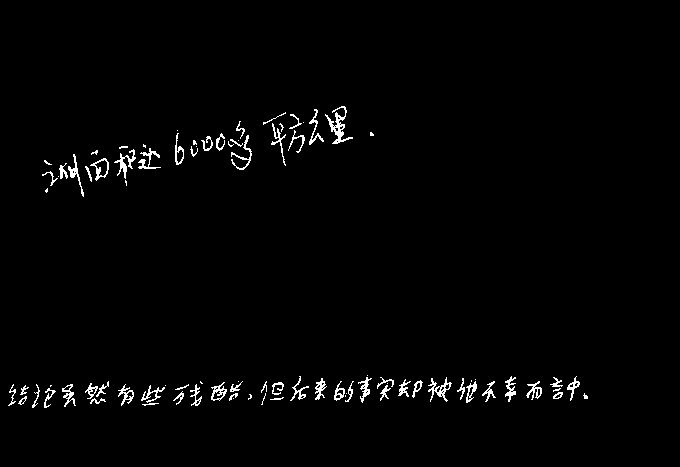 洲面积达6000多平方公里.
结论虽然有些残酷,但后来的事实却被他不幸而言中。